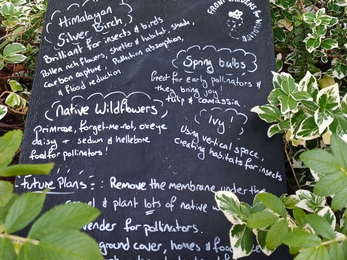 Himalayan
Silver Birch,
Brilliant for insects & birds
Pollen rich flowers, shelter & habitat, shade,
carbon capture, Pollution absorption,
& flood reduction
Spring bulbs
Great for early pollinators &
they bring joy!
tulip & camassia
Native Wildflowers
Primrose, forget-me-not, oxeye
daisy + sedum & hellebore
food for pollinators!
Ivy!
Using vertical space,
creating habitats for insects
Future Plans: Remove the membrane under the
& plant lots of native
for pollinators.
ground cover, homes & food